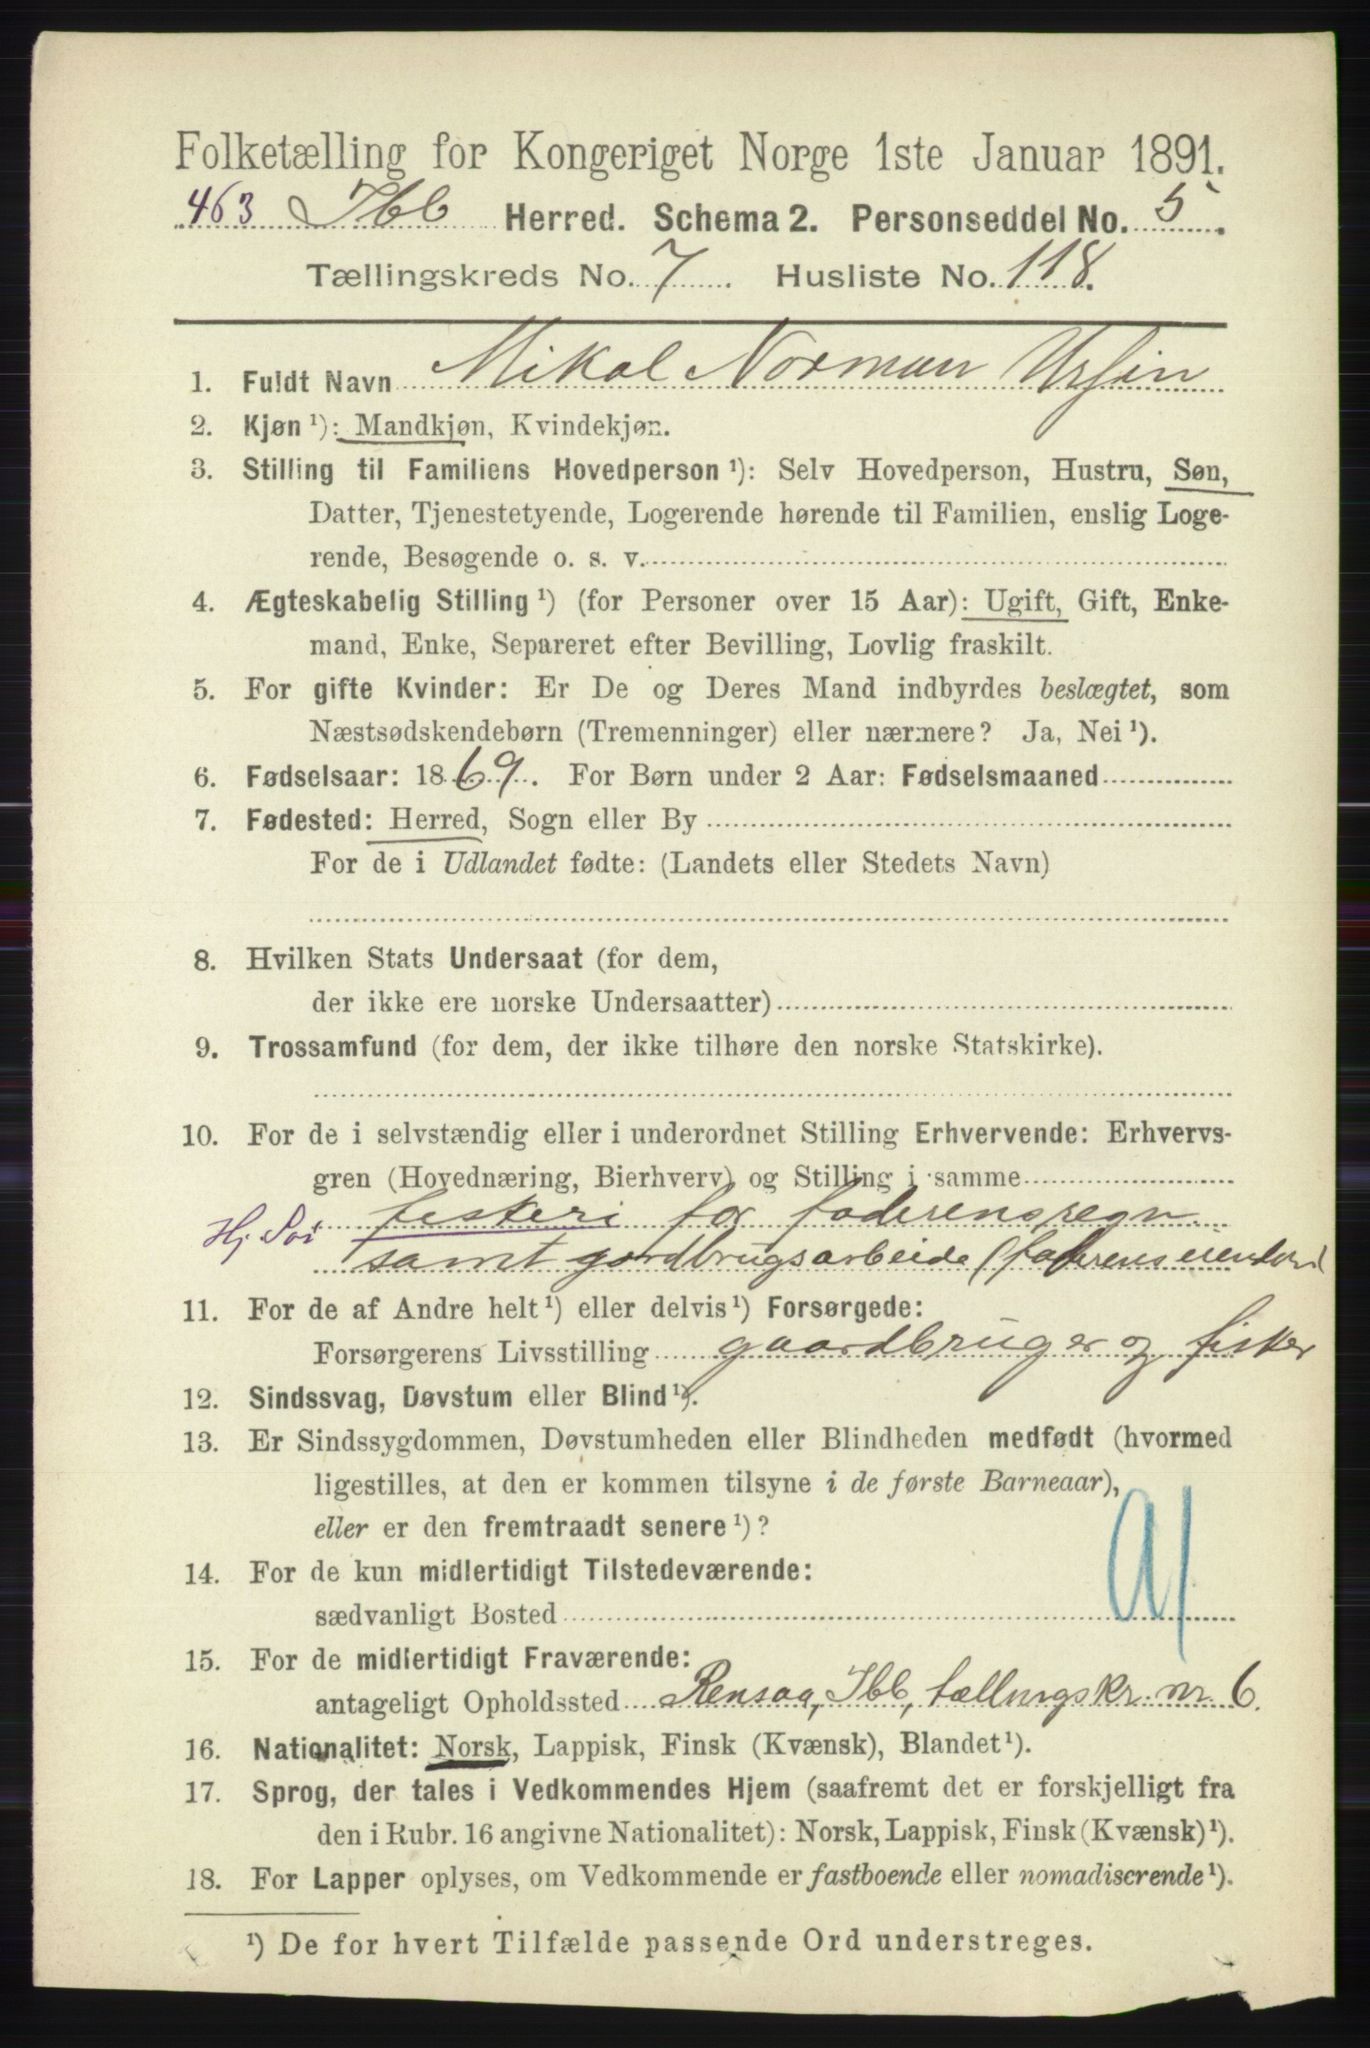 Folketælling for Kongeriget Norge 1ste Januar 1891.
463 Ibb Herred. Schema 2. Personseddel No. 5.
Tællingskreds No. 7 Husliste No. 118.
1. Fuldt Navn Mikal Norman Ursin
2. Kjøn ¹): Mandkjøn, Kvindekjøn.
3. Stilling til Familiens Hovedperson ¹): Selv Hovedperson, Hustru, Søn,
Datter, Tjenestetyende, Logerende hørende til Familien, enslig Loge-
rende, Besøgende o. s. v.
4. Ægteskabelig Stilling ¹) (for Personer over 15 Aar): Ugift, Gift, Enke-
mand, Enke, Separeret efter Bevilling, Lovlig fraskilt.
5. For gifte Kvinder: Er De og Deres Mand indbyrdes beslægtet, som
Næstsødskendebørn (Tremenninger) eller nærmere? Ja, Nei ¹).
6. Fødselsaar: 1869. For Børn under 2 Aar: Fødselsmaaned
7. Fødested: Herred, Sogn eller By
For de i Udlandet fødte: (Landets eller Stedets Navn)
8. Hvilken Stats Undersaat (for dem,
der ikke ere norske Undersaatter)
9. Trossamfund (for dem, der ikke tilhøre den norske Statskirke).
10. For de i selvstændig eller i underordnet Stilling Erhvervende: Erhvervs-
gren (Hovednæring, Bierhverv) og Stilling i samme
Hj. Søi fiskeri for faderens regn.
samt gårdbrugsarbeide (faderens eiendom)
11. For de af Andre helt ¹) eller delvis ¹) Forsørgede:
Forsørgerens Livsstilling gaardbruger og fisker
12. Sindssvag, Døvstum eller Blind ¹).
13. Er Sindssygdommen, Døvstumheden eller Blindheden medfødt (hvormed
ligestilles, at den er kommen tilsyne i de første Barneaar),
eller er den fremtraadt senere ¹)?
14. For de kun midlertidigt Tilstedeværende:
sædvanligt Bosted
15. For de midlertidigt Fraværende:
antageligt Opholdssted Rensaa, Ibb, tællingskr. nr. 6.
16. Nationalitet: Norsk, Lappisk, Finsk (Kvænsk), Blandet ¹).
17. Sprog, der tales i Vedkommendes Hjem (saafremt det er forskjelligt fra
den i Rubr. 16 angivne Nationalitet): Norsk, Lappisk, Finsk (Kvænsk) ¹).
18. For Lapper oplyses, om Vedkommende er fastboende eller nomadiserende ¹).
¹) De for hvert Tilfælde passende Ord understreges.